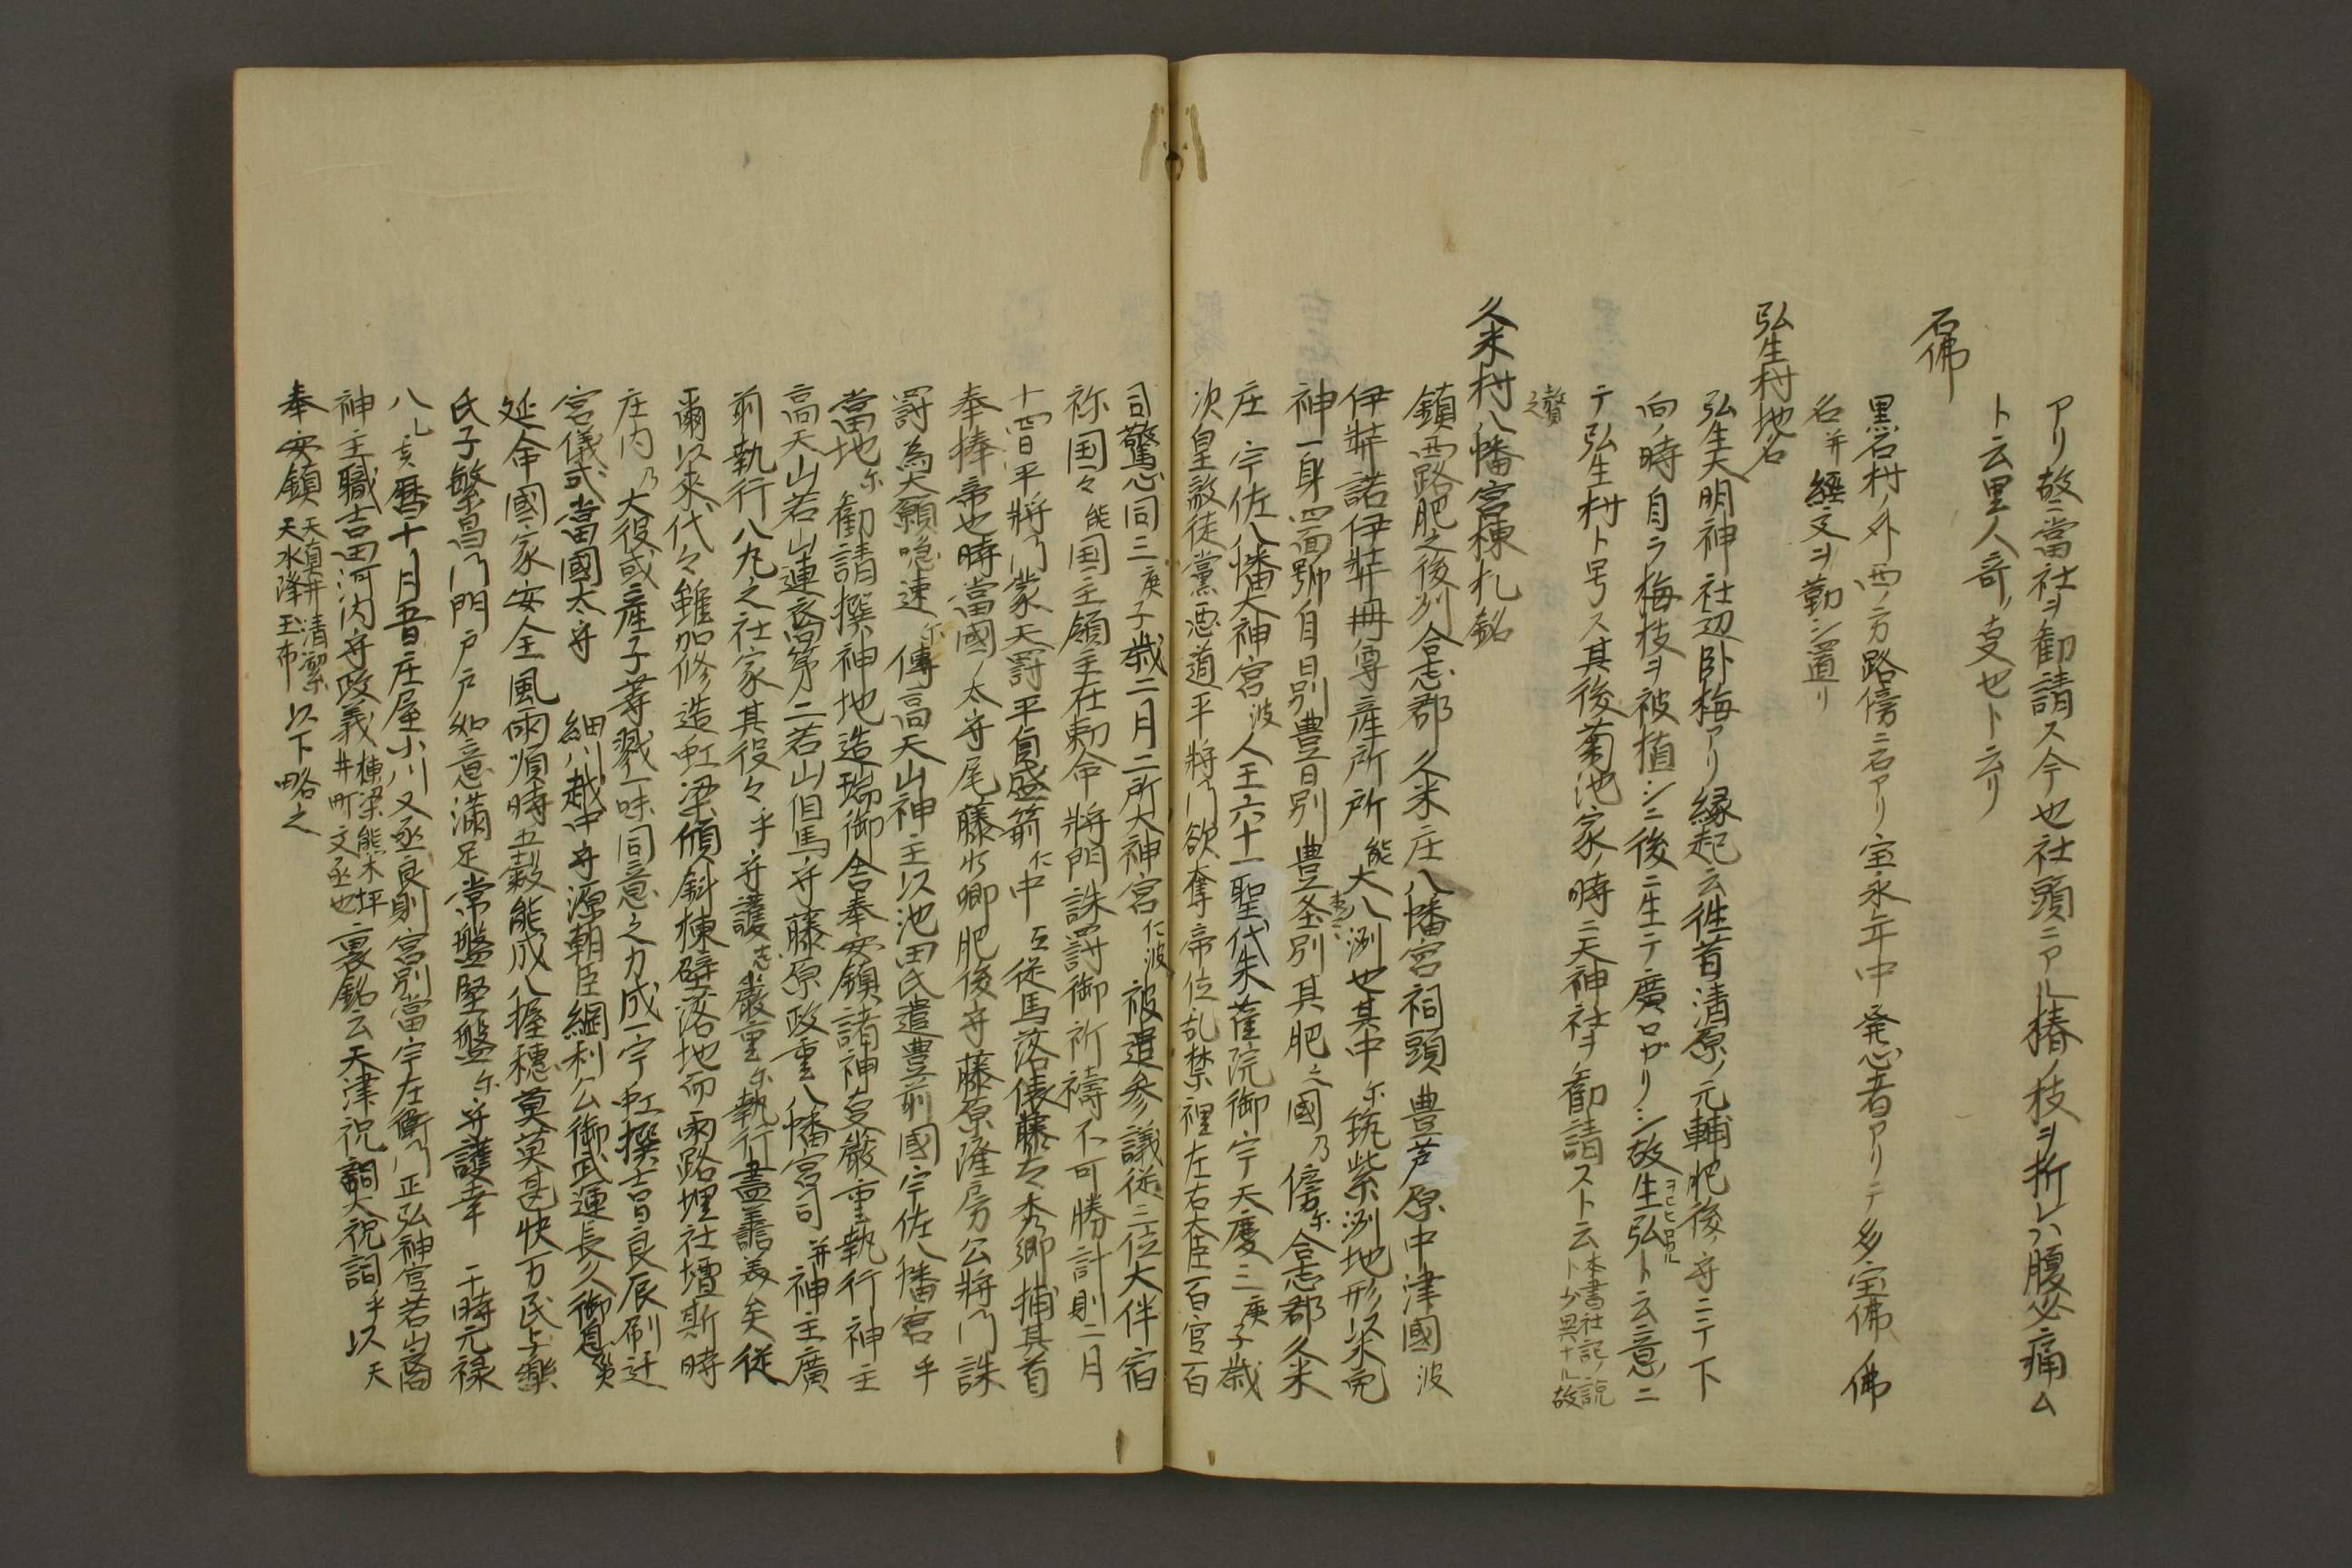 アリ故ニ當社ヲ勸請ス今也社頭ニアル椿ノ枝ヲ折レハ腹必痛ム
ト云里人奇ノ支也ト云リ
石佛
黒石村ノ外西ノ方路傍ニ石アリ宝永年中発心者アリテ多宝佛ノ佛
名并經文ヲ勤シ置リ
弘生村地名
弘生天明神社辺臥梅アリ縁起云徃昔清原ノ元輔肥後ノ守ニテ下
向ノ時自ラ梅枝ヲ被植シニ後ニ生テ廣ロガリシ故生弘ト云意ニ
テ弘生村ト号ス其後菊池家ノ時ニ天神社ヲ勸請スト云本書社記ノ説ト少異ナル故
贅之
久米村八幡宮棟札銘
鎮西路肥之後刕合志郡久米庄八幡宮祠頭豊芦原中津國波
伊弉諾伊弉冊尊産所所能大八洌也其中尓筑紫洌地形以来完
神一身四面号自日別豊日別豊久別其肥之國乃傍尓合志郡久米
庄宇佐八幡大神宮波人王六十一聖代朱雀院御宇天慶三庚子歳
次皇敵徒黨悪道平将门欲奪帝位乱禁裡左右大臣百官百
司驚恐同三庚子歳二月二所大神宮仁波被遣参議従三位大伴宿
祢国々能国主領主在勅命将門誅罸御祈禱不可勝計則二月
十四日平将门蒙天罸平貞盛箭仁中互従馬落俵藤太秀郷捕其首
奉捧帝也時當國ノ太守尾藤少卿肥後守藤原隆房公将门誅
罸為大願急速尓傳高天山神主以池田氏遣豊前國宇佐八幡宮乎
當地尓勸請撰神地造瑞御舎奉安鎮諸神支嚴重執行神主
高天山若山連裔第二若山但馬守藤原政重八幡宮司并神主廣
前執行八九之社家其役々乎守護志嚴重尓執行盡善盡美矣従
爾以來代々雖加修造虹梁傾斜棟壁落地而雨路埋社壇斯時
庄内乃大役或産子等戮一味同意之力成一宇虹撰吉日良辰刷迁
宮儀式當國太守 細川越中守源朝臣綱利公御武運長久御息災
延命國家安全風雨順時五穀能成八握穂莫莫甚快万民与樂
氏子繁昌门門戸戸如意満足常盤堅盤尓守護幸 干時元禄
八乙亥暦十月吾日庄屋小川又丞良則宮別當宇左衛门正弘神官若山裔
神主職吉田河内守政義棟梁熊木坪井町文丞也裏銘云天津祝詞大祝詞乎以天
奉安鎮天真井清潔天水降玉布以下略之